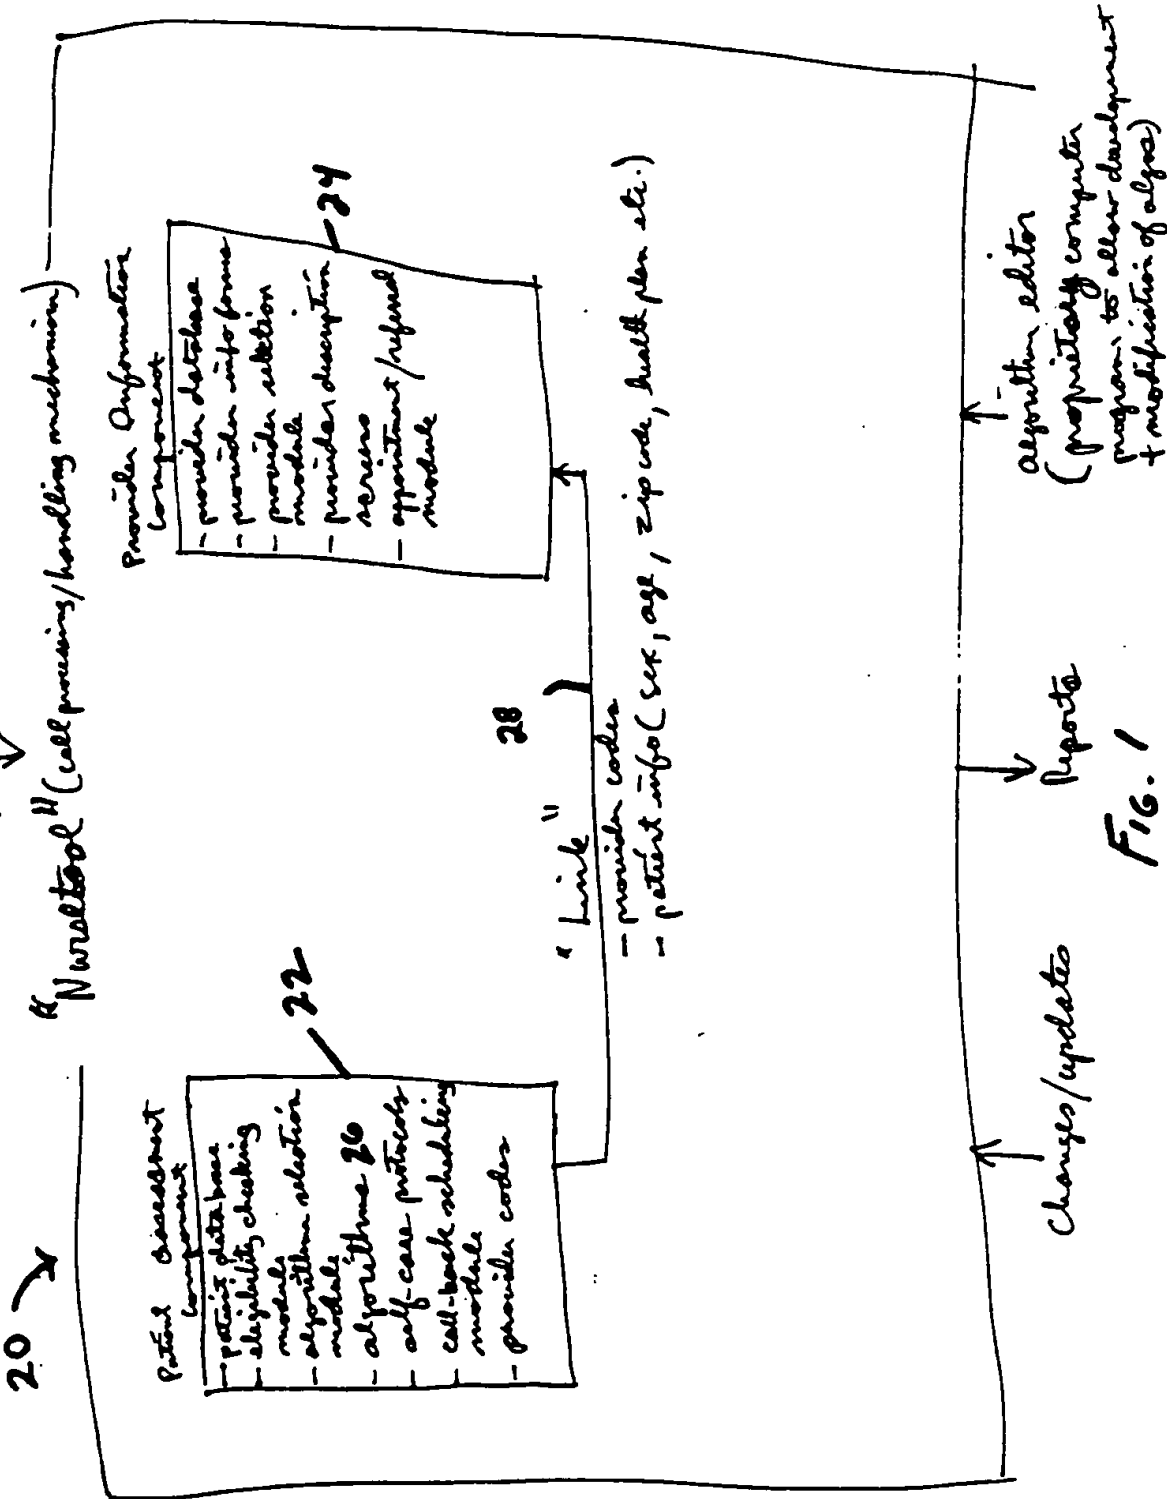 20
"Nursetool" (call processing/handling mechanism)
Patient assessment
component
- patient database
- eligibility checking
module
- algorithm selection
module
- algorithms 26
- self-care protocols
- call-back scheduling
module
- provider codes
22
Provider Information
component
- provider database
- provider info forms
- provider selection
module
- provider description
screens
- appointment/referral
module
24
28
"Link"
- provider codes
- patient info (sex, age, zip code, health plan etc.)
Changes/updates
Reports
algorithm editor
(proprietary computer
program to allow development
+ modification of algos)
FIG. 1